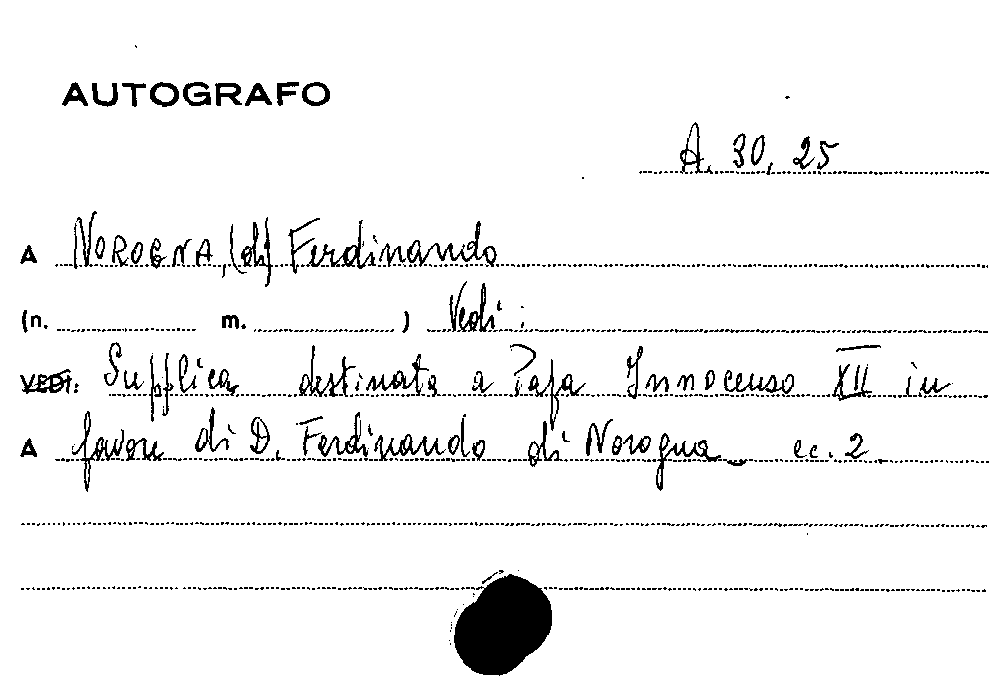 AUTOGRAFO
A. 30, 25
A NOROGNA, (di) Ferdinando
(n. m. ) Vedi :
VEDI: Supplica destinata a Papa Innocenso XII in
A favore di D. Ferdinando di Norogna_ cc. 2.